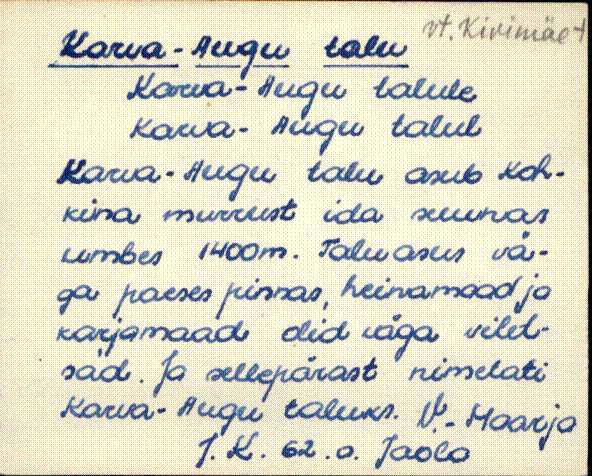 vt. Kivimäe t
Karva-Augu talu
Karva-Augu talule
Karva-Augu talul
Karva-Augu talu asub Koh-
kina murrust ida suunas
umbes 1400m. Talu asus vä-
ga paeses pinnas, heinamaad ja
karjamaad olid väga vilet-
sad. Ja sellepärast nimetati
Karva-Augu taluks. V.-Maarja
J. K. 62. a. Jaola